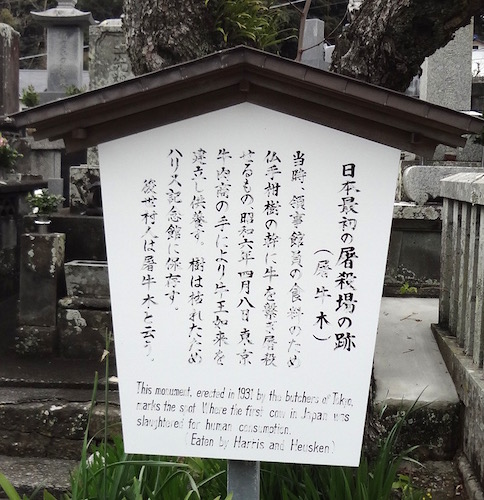 日本最初の屠殺場の跡
(屠牛木)
当時、領事館員の食料のため
仏手柑樹の幹に牛を繋ぎ屠殺
せるもの、昭和六年四月八日東京
牛肉商の手により牛王如来を
建立し供養す。樹は枯れたため
ハリス記念館に保存す。
後世村人は屠牛木と云う。
This monument, erected in 1931 by the butchers of Tokyo,
marks the spot. Where the first cow in Japan was
slaughtered for human consumption.
(Eaten by Harris and Heusken)